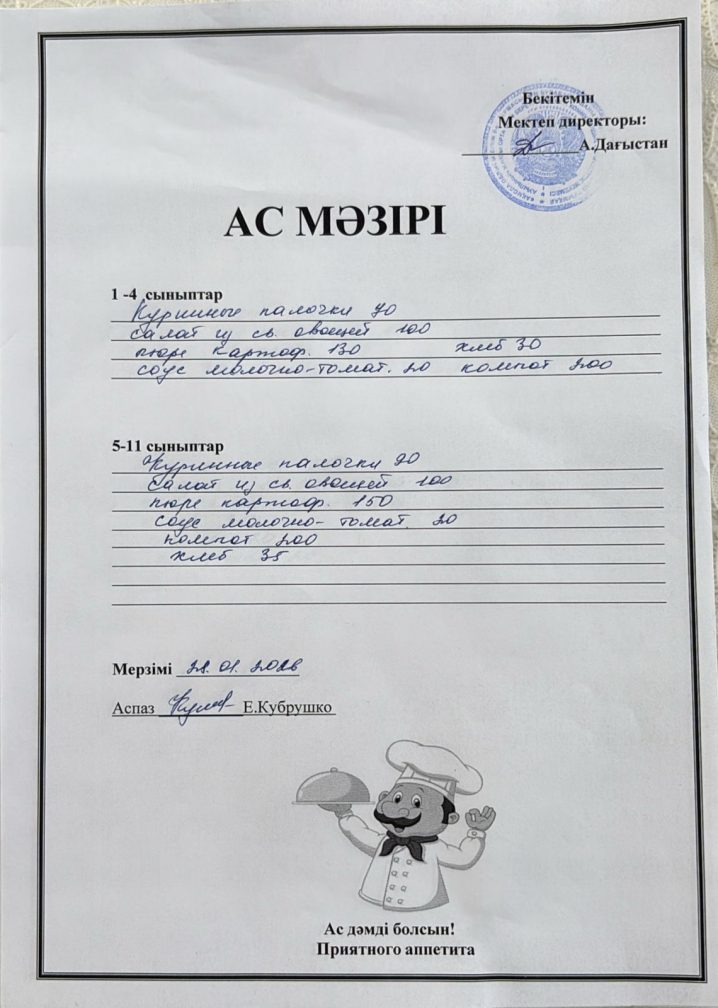 Бекітемін
Мектеп директоры:
А.Дағыстан
АС МӘЗІРІ
1 -4 сыныптар
Куринные палочки 90
салат из св. овощей 100
пюре картоф. 130 хлеб 30
соус молочно-томат. 20 компот 200
5-11 сыныптар
Куринные палочки 90
салат из св. овощей 100
пюре картоф. 150
соус молочно-томат. 20
компот 200
хлеб 35
Мерзімі 28.01.2026
Аспаз Е.Кубрушко
Ас дәмді болсын!
Приятного аппетита